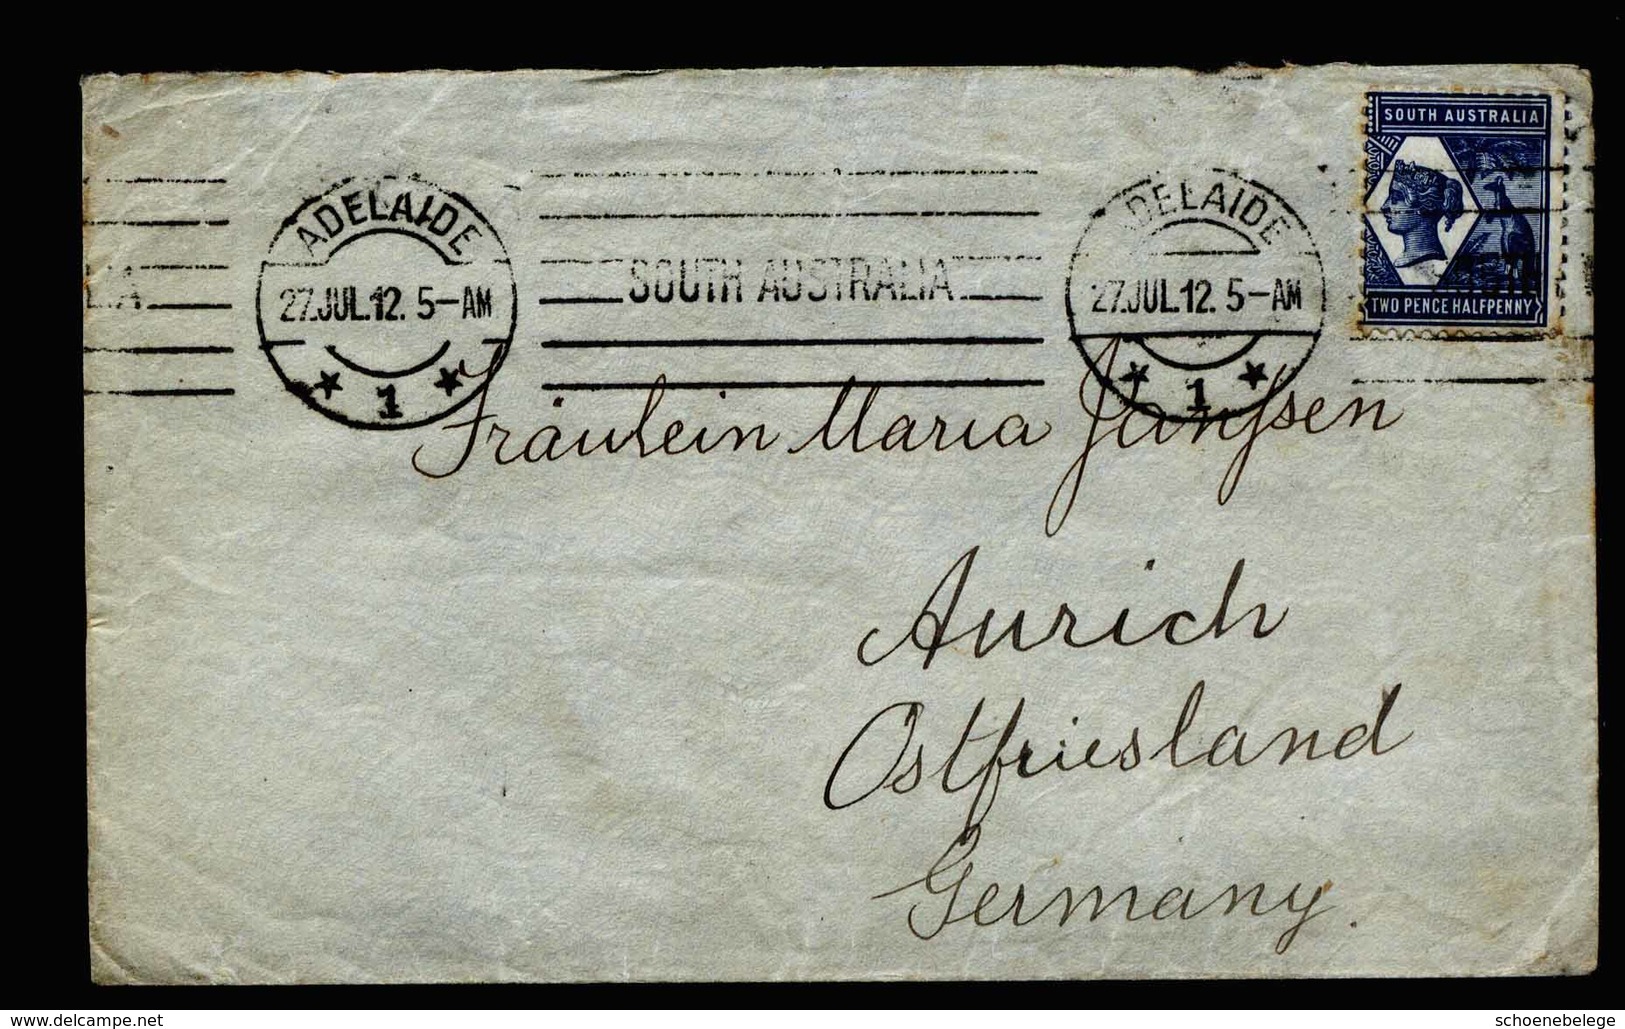 SOUTH AUSTRALIA
TWO PENCE HALFPENNY
ADELAIDE
27.JUL.12. 5-AM
1
SOUTH AUSTRALIA
ADELAIDE
27.JUL.12. 5-AM
1
LIA
Fräulein Maria Janssen
Aurich
Ostfriesland
Germany.
www.delcampe.net
schoenebelege